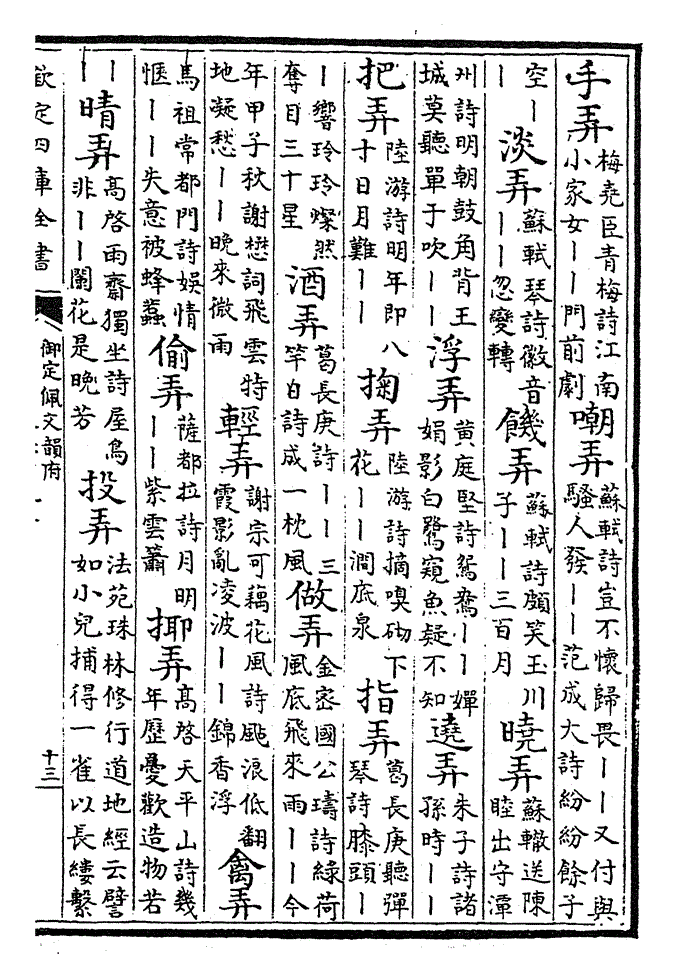 手弄
梅堯臣青梅詩江南
小家女丨丨門前劇
嘲弄
蘇軾詩豈不懷歸畏丨丨又付與
騷人發丨丨范成大詩紛紛餘子
空丨
丨
淡弄
蘇軾琴詩徽音
丨丨忽變轉
饑弄
蘇軾詩頗笑玉川
子丨丨三百月
曉弄
蘇轍送陳
睦出守潭
州詩明朝鼓角背王
城莫聽單于吹丨丨
浮弄
黃庭堅詩鴛鴦丨丨嬋
娟影白鷺窺魚疑不知
遶弄
朱子詩諸
孫時丨丨
把弄
陸游詩明年即八
寸日月難丨丨
掬弄
陸游詩摘嗅砌下
花丨丨澗底泉
指弄
葛長庚聽彈
琴詩膝頭丨
丨響玲玲燦然
奪目三十星
酒弄
葛長庚詩丨丨三
竿白詩成一枕風
做弄
金密國公璹詩綠荷
風底飛來雨丨丨今
年甲子秋謝懋詞飛雲特
地凝愁丨丨晚來微雨
輕弄
謝宗可藕花風詩颭浪低翻
霞影亂凌波丨丨錦香浮
禽弄
馬祖常都門詩娛情
愜丨丨失意被蜂蠆
偷弄
薩都拉詩月明
丨丨紫雲簫
揶弄
高啓天平山詩幾
年歷憂歡造物若
丨
丨
晴弄
高啓雨齋獨坐詩屋烏
非丨丨闌花是晚芳
投弄
法苑珠林修行道地經云譬
如小兒捕得一雀以長縷繫
欽定四庫全書
御定佩文韻府
十三